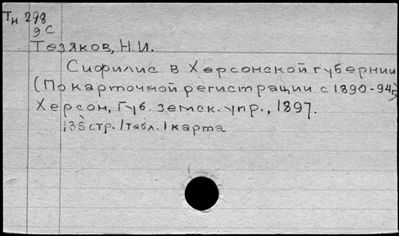 Тн 298
9С
Тезяков, Н.И.
Сифилис в Херсонской губернии
(По карточной регистрации с 1890-94)
Херсон, Губ. земск. упр., 1897.
135 стр. 1 табл. 1 карта